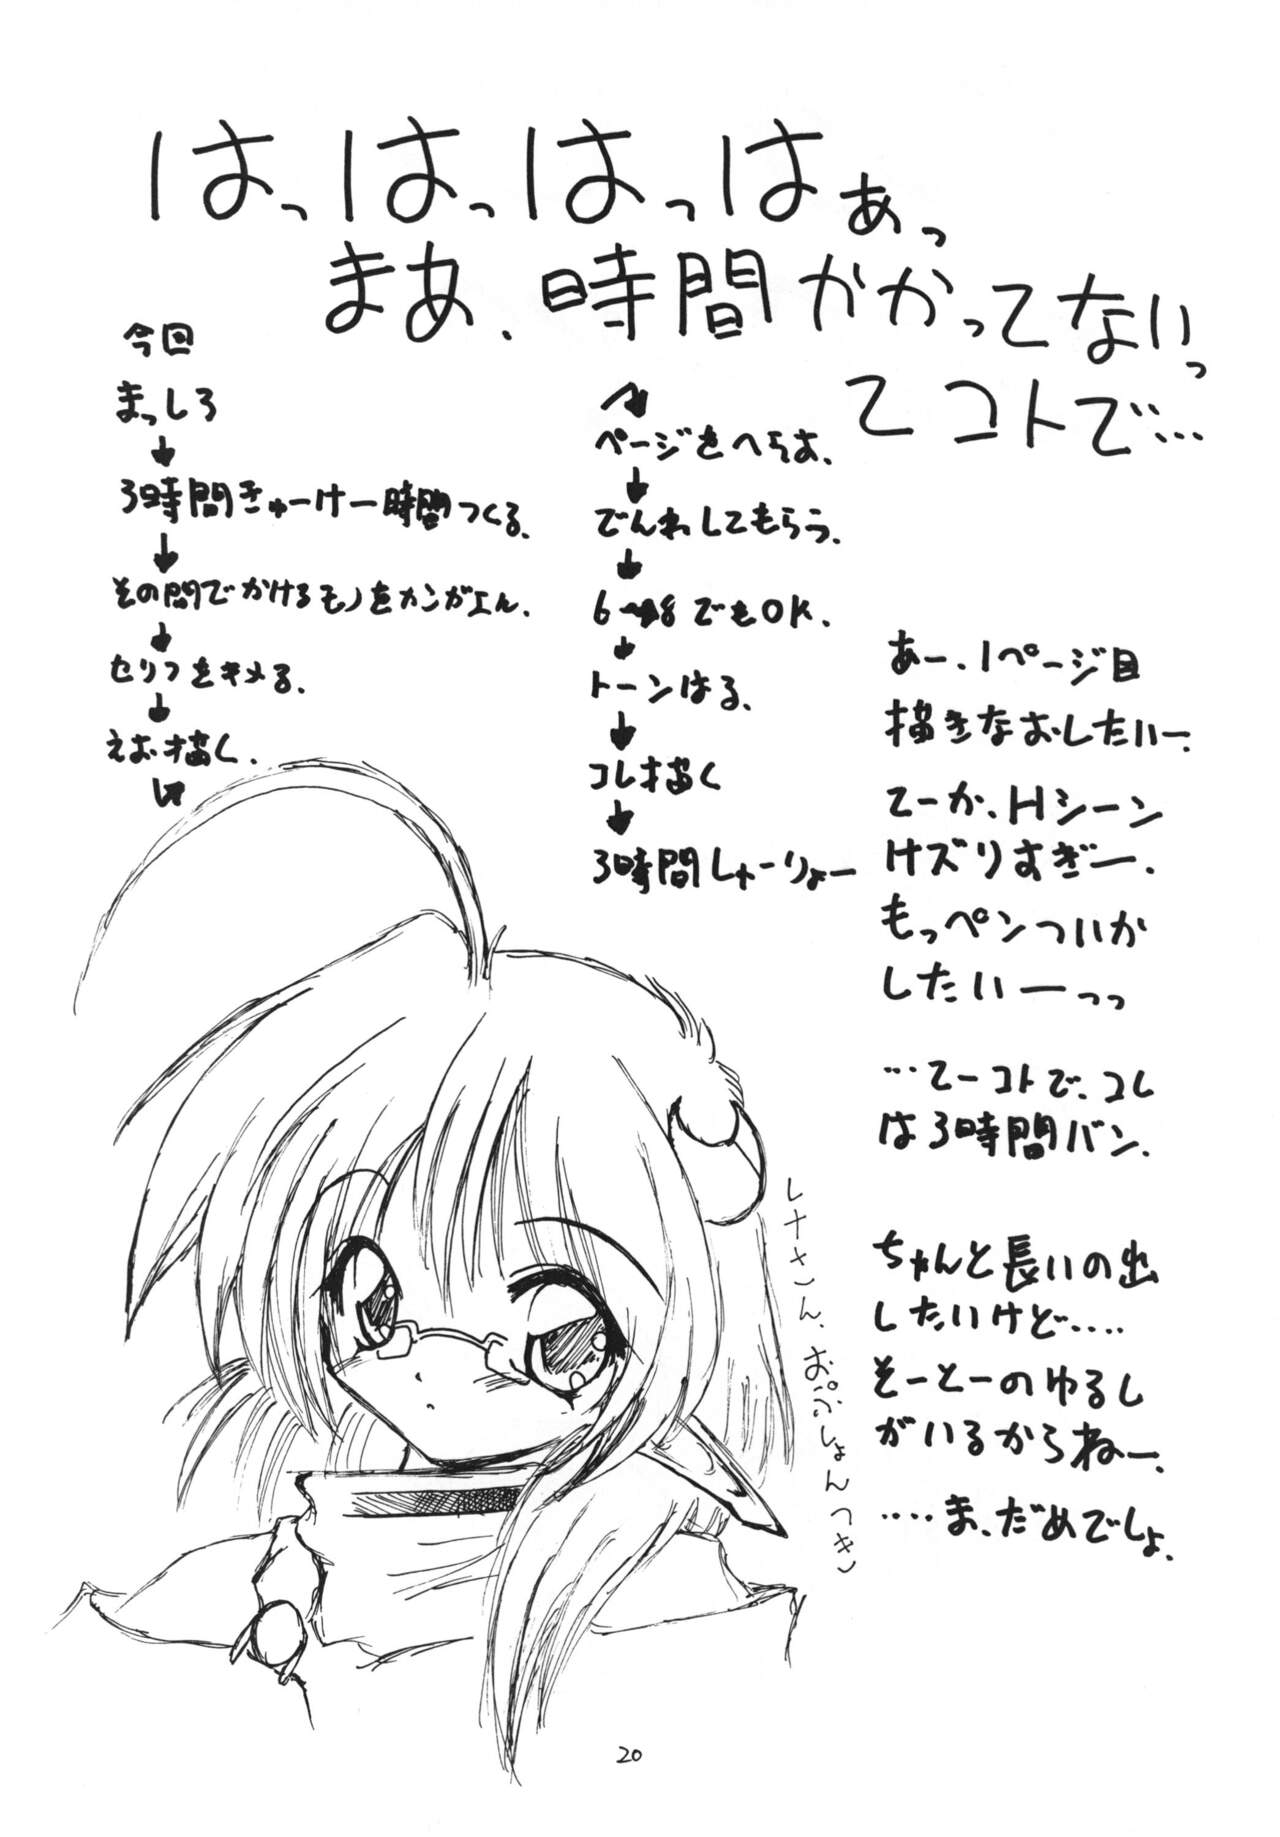 はっはっはっはぁっ
まあ、時間かかってないっ
てコトで…
今回
まっしろ
↓
3時間きゅーけー時間つくる.
↓
その間でかけるモノをカンガエん.
↓
セリフをキメる.
↓
えお描く.
ページをへらす.
↓
でんわしてもらう.
↓
6〜8でもOK.
↓
トーンはる.
↓
コレ描く
↓
3時間しゅーりょー
あー、1ページ目
描きなおしたいー.
てーか、Hシーン
けズりすぎー.
もっペンついか
したいーっっ
…てーコトで、コレ
は3時間バン.
ちゃんと長いの出
したいけど.....
そーとーのゆるし
がいるからねー.
....ま、だめでしょ.
レナさん、おぷしょんつき
20